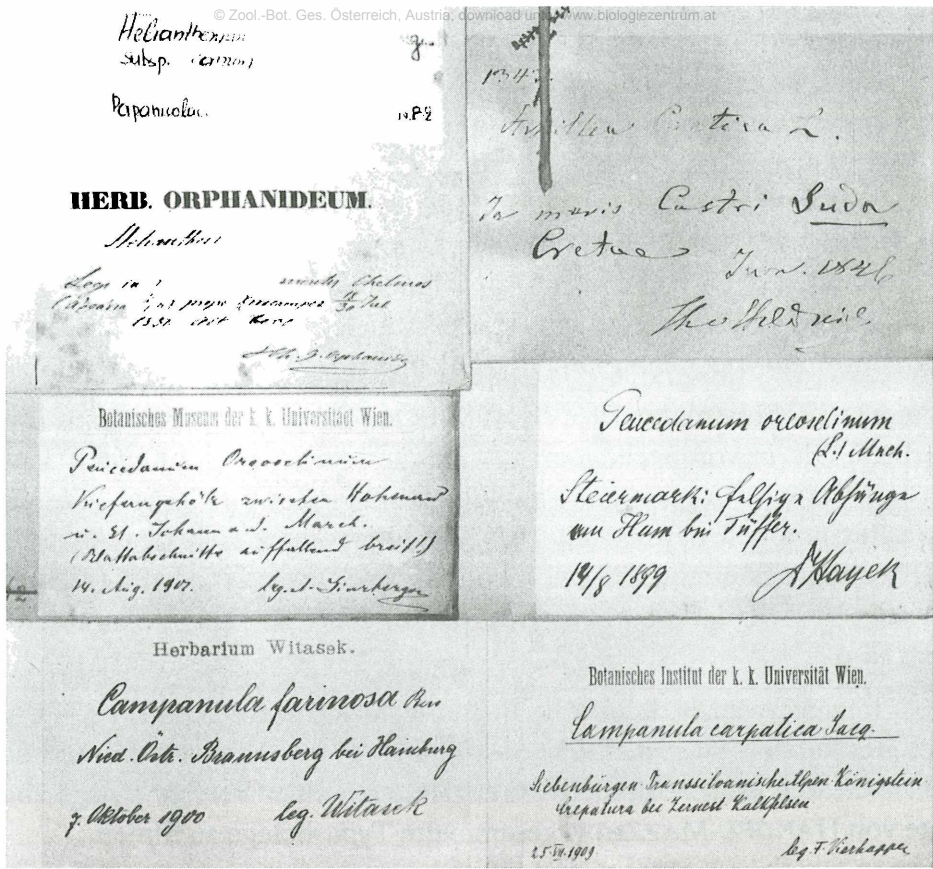 © Zool.-Bot. Ges. Österreich, Austria; download unter www.biologiezentrum.at
Helianthemum
subsp.
HERB. ORPHANIDEUM.
Chelmos
prope
1347
Cretica L.
In muris Castri Suda
Cretae
Jun. 1846
Botanisches Museum der k. k. Universitaet Wien.
Peucedanum Oreoselinum
Kieferngehölz zwischen Hohenau
u. St. Johann a. d. March.
(Blattabschnitte auffallend breit!)
14. Aug. 1907. leg. A. Ginzberger
Peucedanum oreoselinum
(L.) Mnch.
Steiermark: felsige Abhänge
am Hum bei Tüffer.
14/8 1899 AHayek
Herbarium Witasek.
Campanula farinosa
Nied. Östr. Braunsberg bei Hainburg
7. Oktober 1900 leg. Witasek
Botanisches Institut der k. k. Universität Wien.
Campanula carpatica Jacq.
Siebenbürgen Transsilvanische Alpen Königstein
Crepatura bei Zernest Kalkfelsen
25.VII.1909 leg. F. Vierhapper